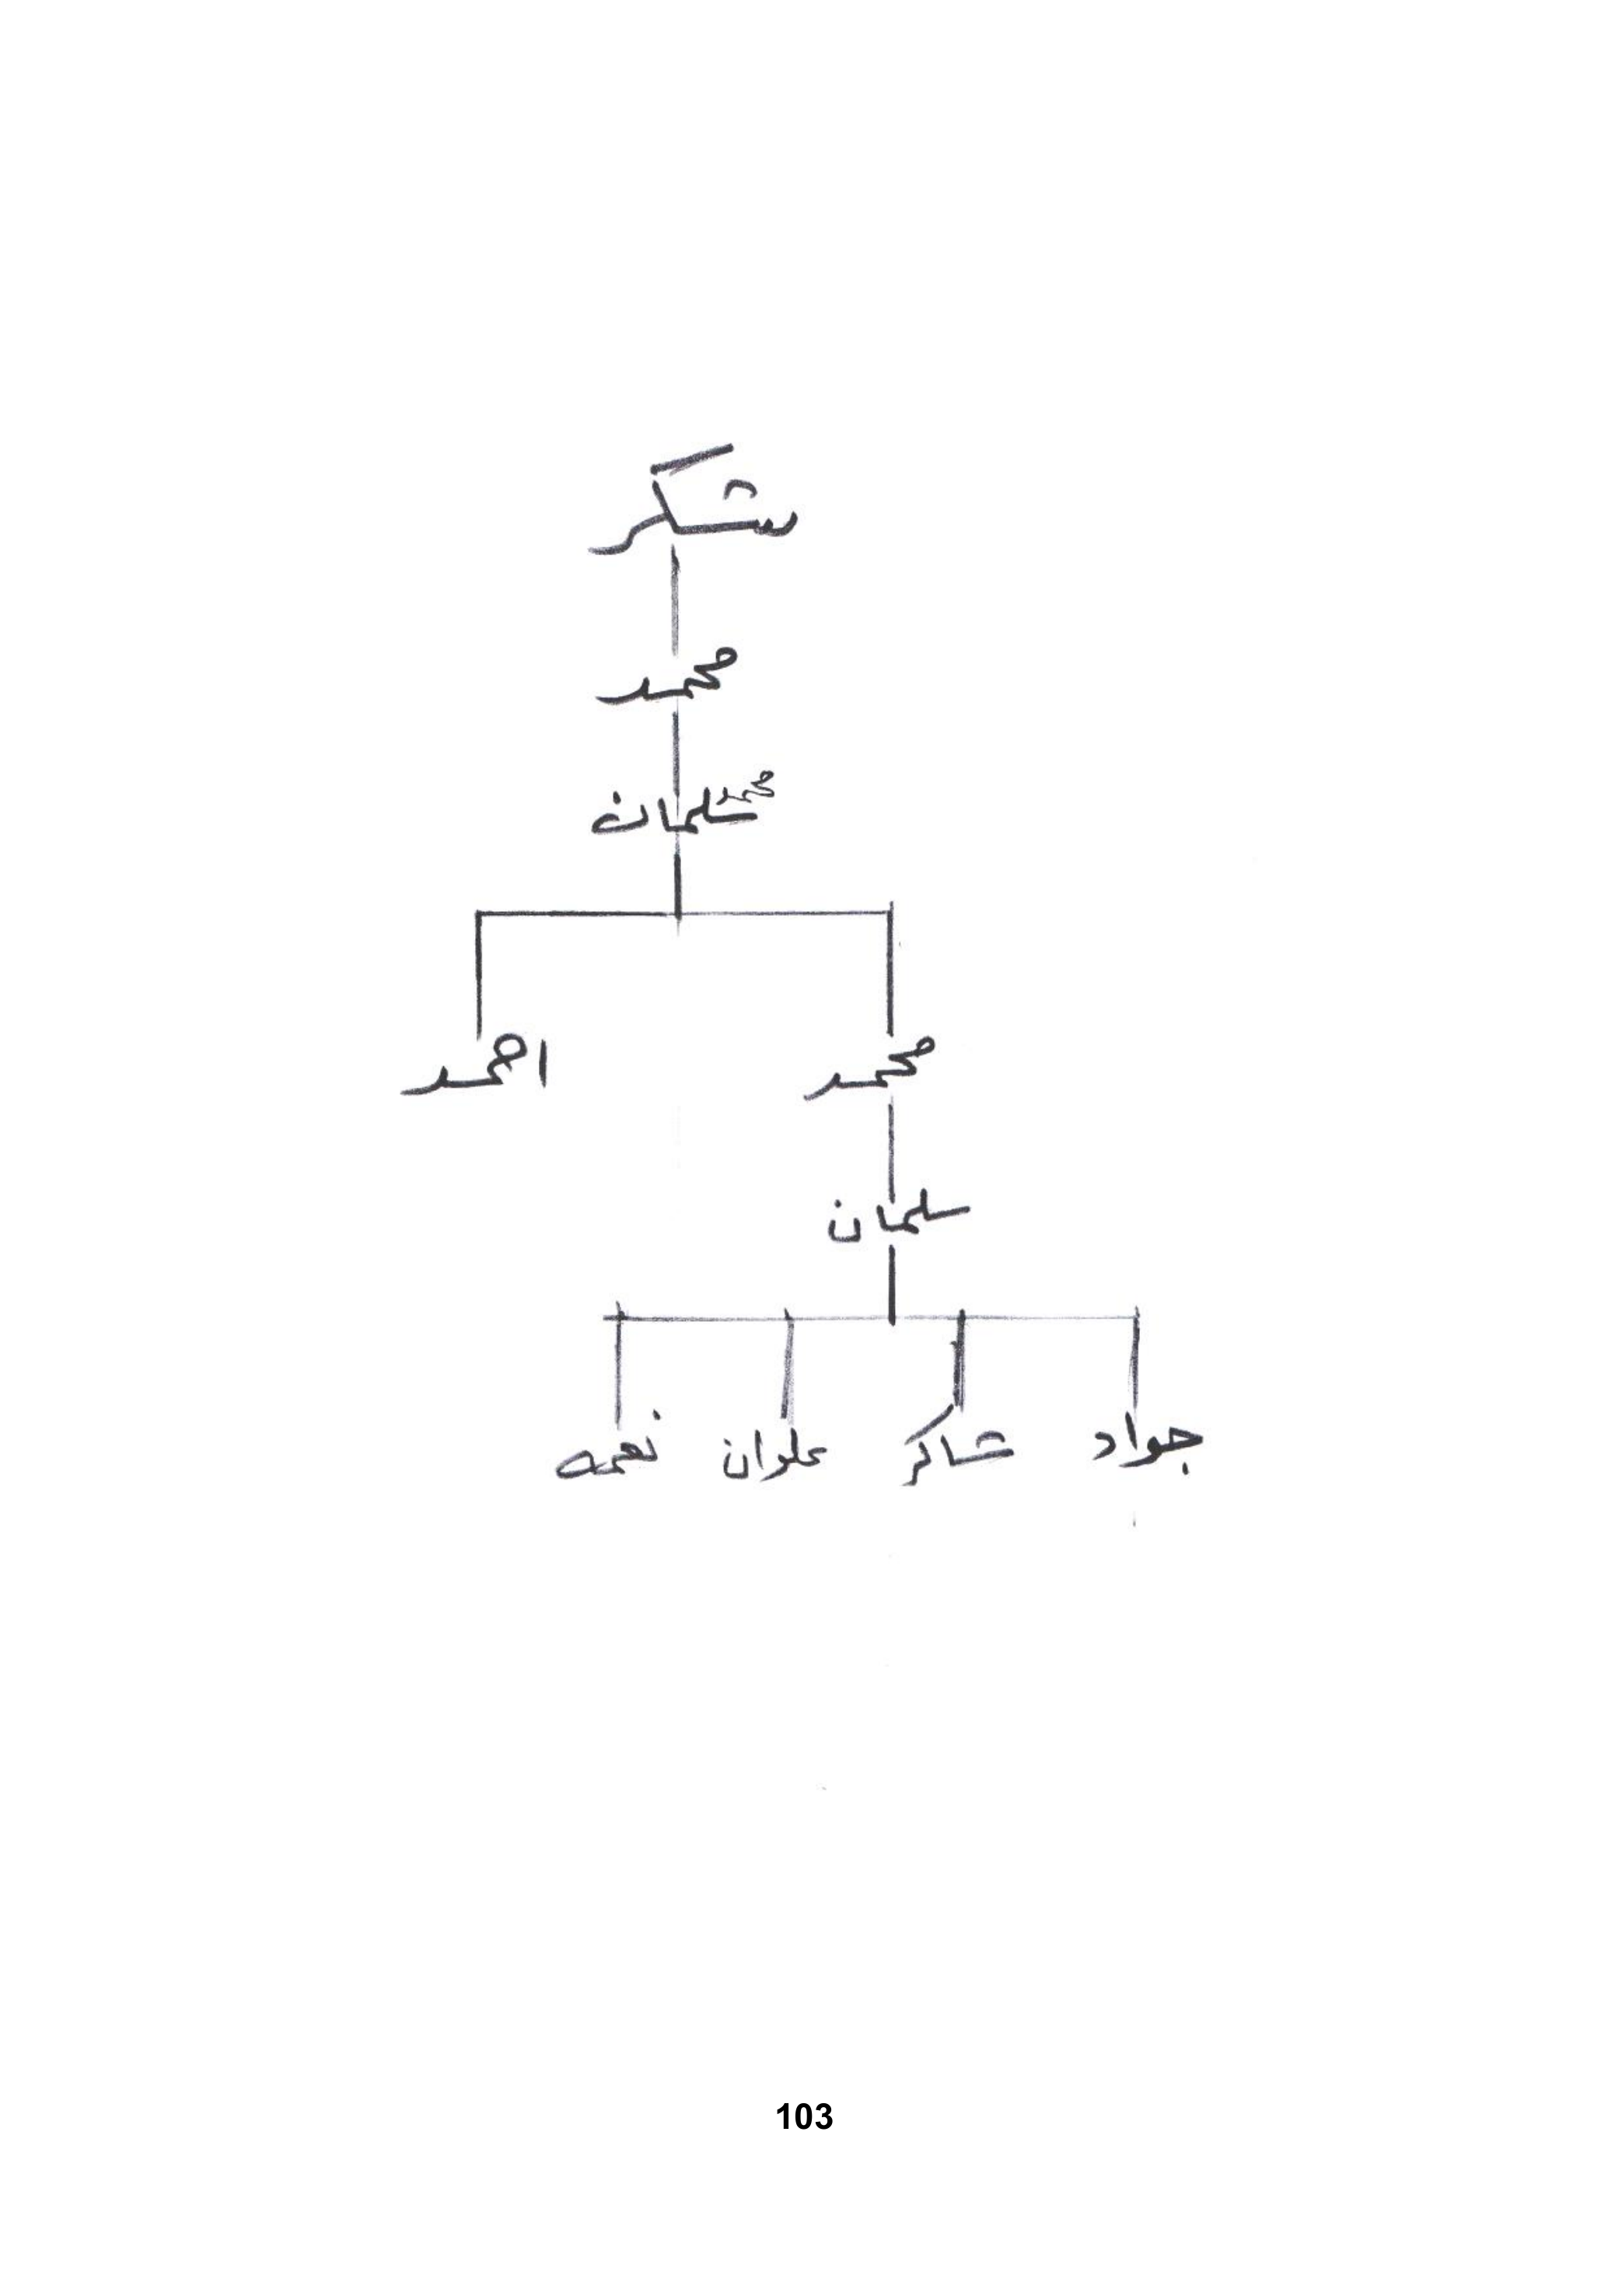 شكر
محمد
محمد
سلمان
محمد احمد
سلمان
جواد شاكر علوان نعمه
103